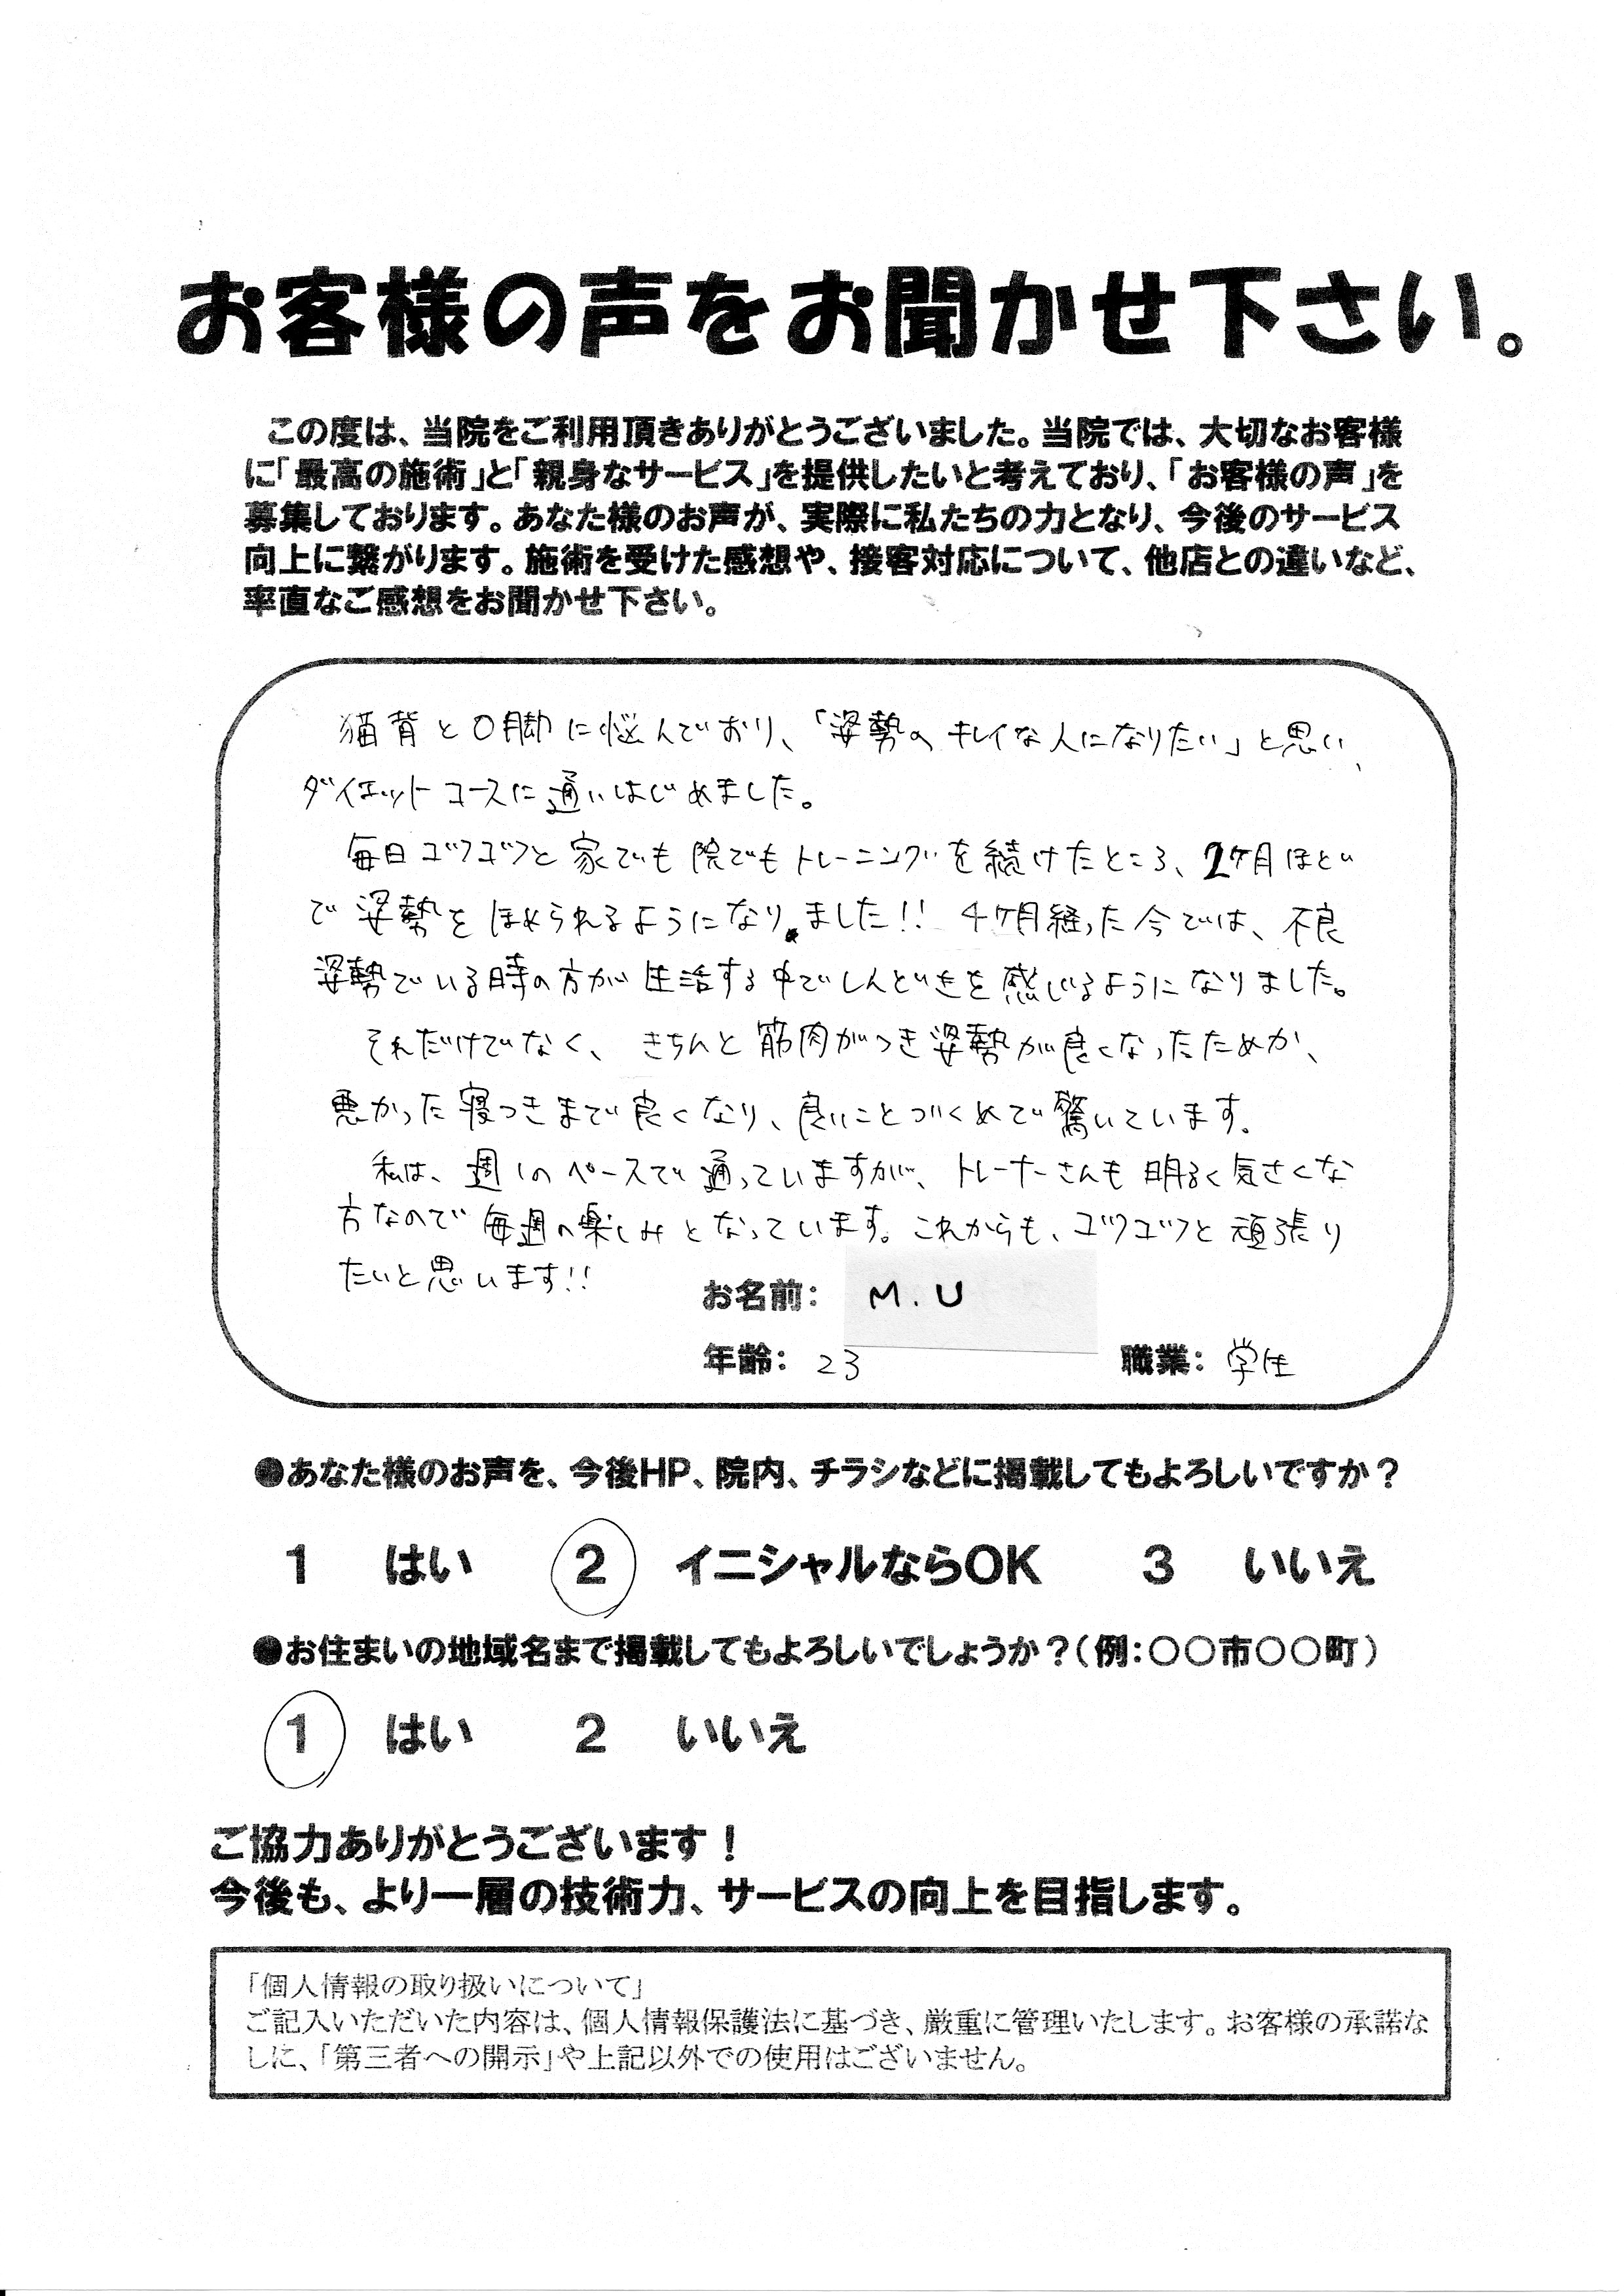 お客様の声をお聞かせ下さい。
この度は、当院をご利用頂きありがとうございました。当院では、大切なお客様
に「最高の施術」と「親身なサービス」を提供したいと考えており、「お客様の声」を
募集しております。あなた様のお声が、実際に私たちの力となり、今後のサービス
向上に繋がります。施術を受けた感想や、接客対応について、他店との違いなど、
率直なご感想をお聞かせ下さい。
猫背とO脚に悩んでおり、「姿勢のキレイな人になりたい」と思い、
ダイエットコースに通いはじめました。
毎日コツコツと家でも院でもトレーニングを続けたところ、2ヶ月ほど
で姿勢をほめられるようになりました!! 4ヶ月経った今では、不良
姿勢でいる時の方が生活する中でしんどさを感じるようになりました。
それだけでなく、きちんと筋肉がつき姿勢が良くなったためか、
悪かった寝つきまで良くなり、良いことづくめで驚いています。
私は、週1のペースで通っていますが、トレーナーさんも明るく気さくな
方なので毎週の楽しみとなっています。これからも、コツコツと頑張り
たいと思います!!
お名前: M.U
年齢: 23 職業: 学生
●あなた様のお声を、今後HP、院内、チラシなどに掲載してもよろしいですか？
1 はい 2 イニシャルならOK 3 いいえ
●お住まいの地域名まで掲載してもよろしいでしょうか？(例:○○市○○町)
1 はい 2 いいえ
ご協力ありがとうございます！
今後も、より一層の技術力、サービスの向上を目指します。
「個人情報の取り扱いについて」
ご記入いただいた内容は、個人情報保護法に基づき、厳重に管理いたします。お客様の承諾な
しに、「第三者への開示」や上記以外での使用はございません。